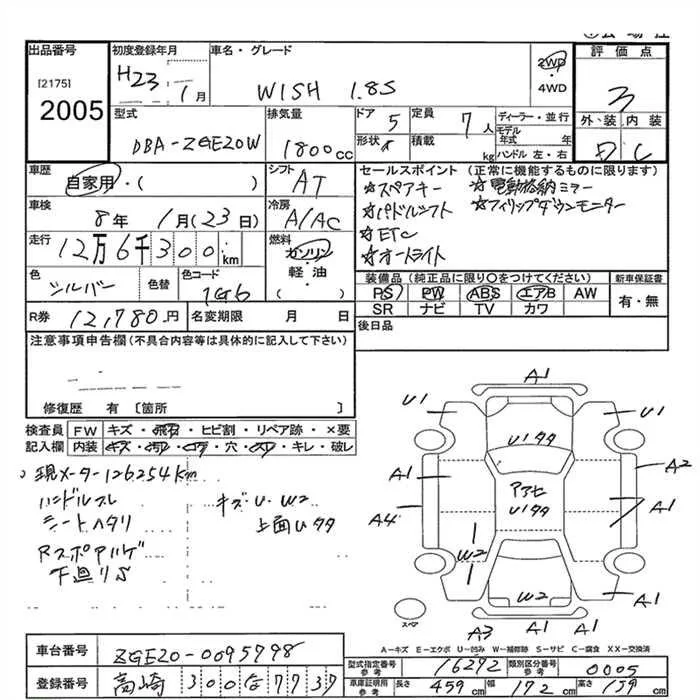 出品番号
[2175]
2005
初度登録年月
H23 1月
車名・グレード
WISH 1.8S
2WD
4WD
評価点
3
外装 内装
D C
型式
DBA-ZGE20W
排気量
1800cc
ドア 5
形状
定員 7人
積載 kg
ディーラー・並行
モデル年式 年
ハンドル 左・右
車歴
自家用・( )
シフト
AT
車検
8年 1月(23日)
冷房
A/AC
走行
12万6千300km
燃料
ガソリン
軽・油
( )
色
シルバー
色替
色コード
1G6
セールスポイント (正常に機能するものに限ります)
☆スペアキー ☆電動格納ミラー
☆パドルシフト ☆フィリップダウンモニター
☆ETC
☆オートライト
装備品 (純正品に限り○をつけてください)
PS PW ABS エアB AW
SR ナビ TV カワ
新車保証書
有・無
R券 12,780円
名変期限 月 日
後日品
注意事項申告欄 (不具合内容等は具体的に記入して下さい)
修復歴 有 [箇所 ]
検査員記入欄
FW キズ・飛石・ヒビ割・リペア跡・×要
内装 キズ・汚レ・コゲ・穴・スレ・キレ・破レ
現メーター126254km
ハンドルスレ
シートヘタリ
下廻りS
キズ・U・W2
上面Uタタ
A1
U1
U1
U1タタ
A1
A2
アアセ
U1タタ
A4
A1
A1
W2
A1
W2
A1
A3 A1 A1
スペア
A-キズ E-エクボ U-凹み W-補修跡 S-サビ C-腐食 XX-交換済
車台番号
ZGE20-0095798
登録番号
高崎 300 な 7737
型式指定番号
参考
16292
類別区分番号
参考
0005
車庫証明用
参考
長さ 459cm
幅 172cm
高さ 159cm